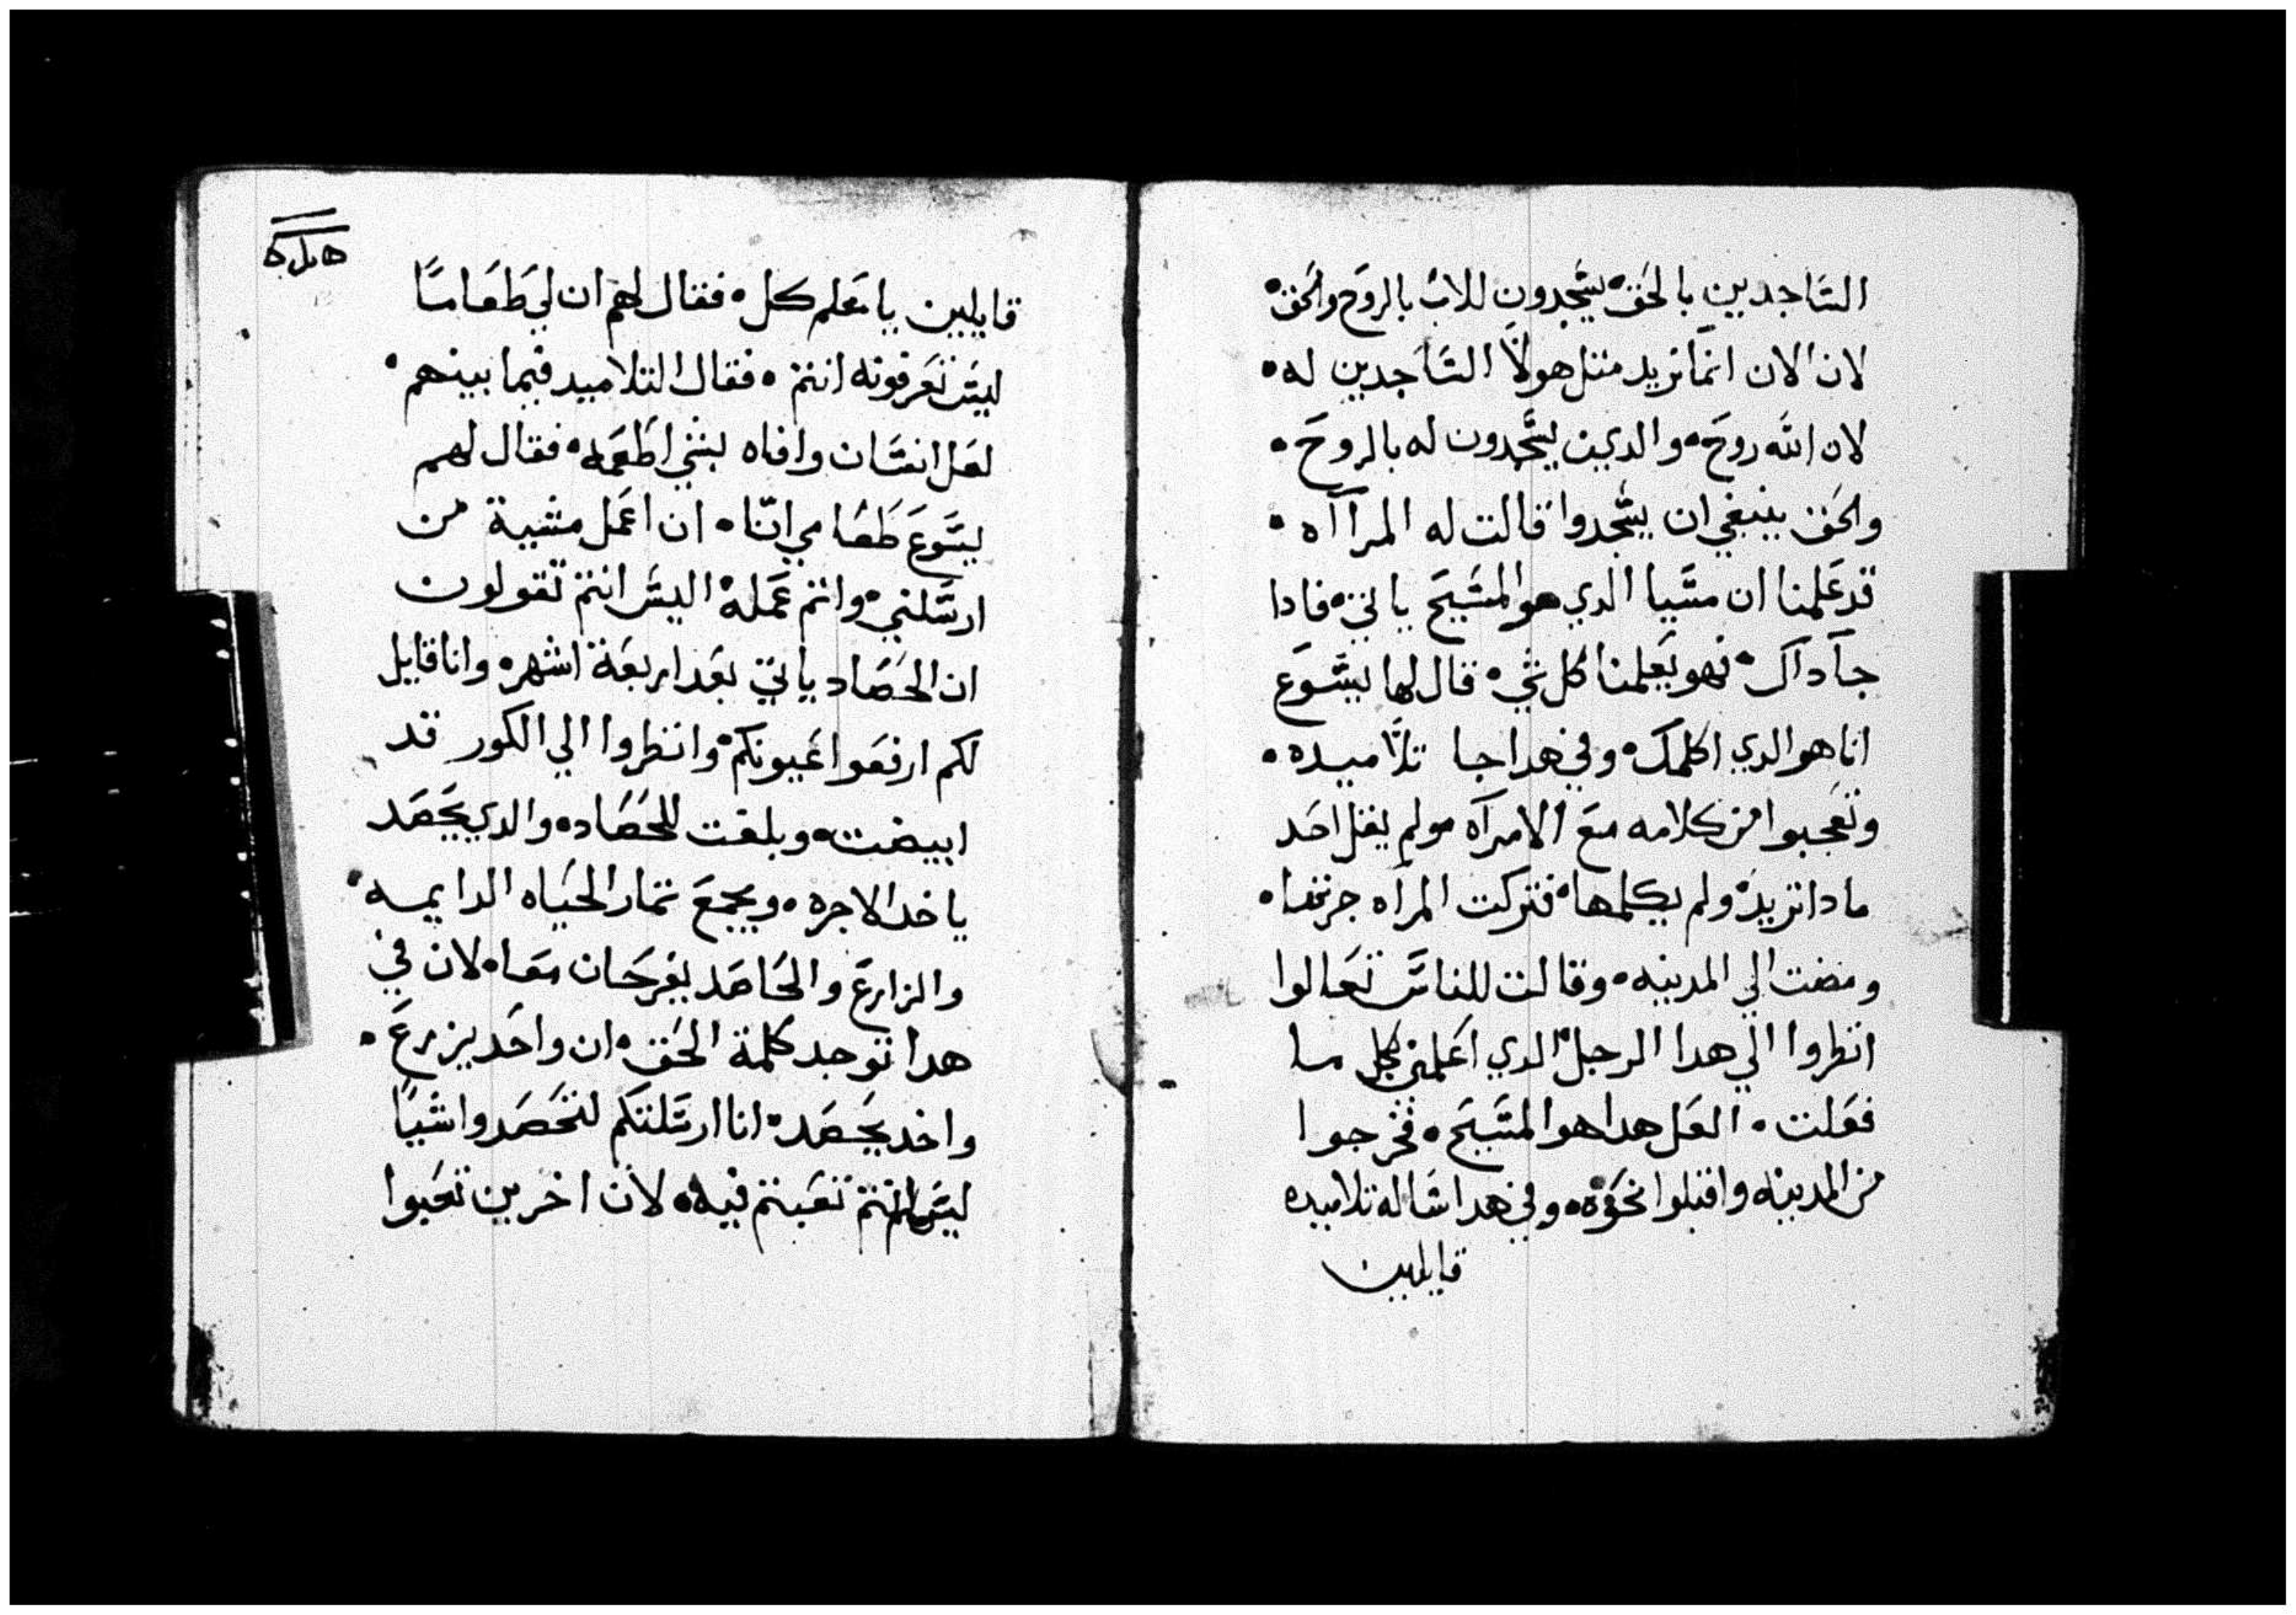 الساجدين بالحق يسجدون للاب بالروح والحق
لان الان انما تريد متل هولا الساجدين له
لان الله روح والدين يسجدون له بالروح
والحق ينبغي ان يسجدوا قالت له المرااه
قد علمنا ان مسيا الدي هو المسيح ياتي فادا
جآ داك فهو يعلمنا كل شي قال لها يسوع
انا هو الدي اكلمك وفي هدا جا تلاميده
وتعجبوا من كلامه مع الامرآه ولم يقل احد
مادا تريد ولم يكلمها فتركت المرآه جرتها
ومضت الي المدينه وقالت للناس تعالوا
انظروا الي هدا الرجل الدي اعلمني بكل ما
فعلت العل هدا هو المسيح فخرجوا
من المدينه واقبلوا نحوه وفي هدا ساله تلاميده
قايليين
قايليين يا معلم كل فقال لهم ان لي طعاماً
ليس تعرفونه انتم فقال التلاميد فيما بينهم
لعل انسان وافاه بشي اطعمه فقال لهم
يسوع طعامي انا ان اعمل مشية من
ارسلني واتم عمله اليس انتم تقولون
ان الحصاد ياتي بعد اربعة اشهر وانا قايل
لكم ارفعوا عيونكم وانظروا الي الكور قد
ابيضت وبلغت للحصاد والدي يحصد
ياخد الاجره ويجمع تمار الحياه الدايمه
والزارع والحاصد يفرحان معا لان في
هدا توجد كلمة الحق ان واحد يزرع
واخد يحصد انا ارسلتكم لتحصدوا شياً
ليس انتم تعبتم فيه لان اخرين تعبوا